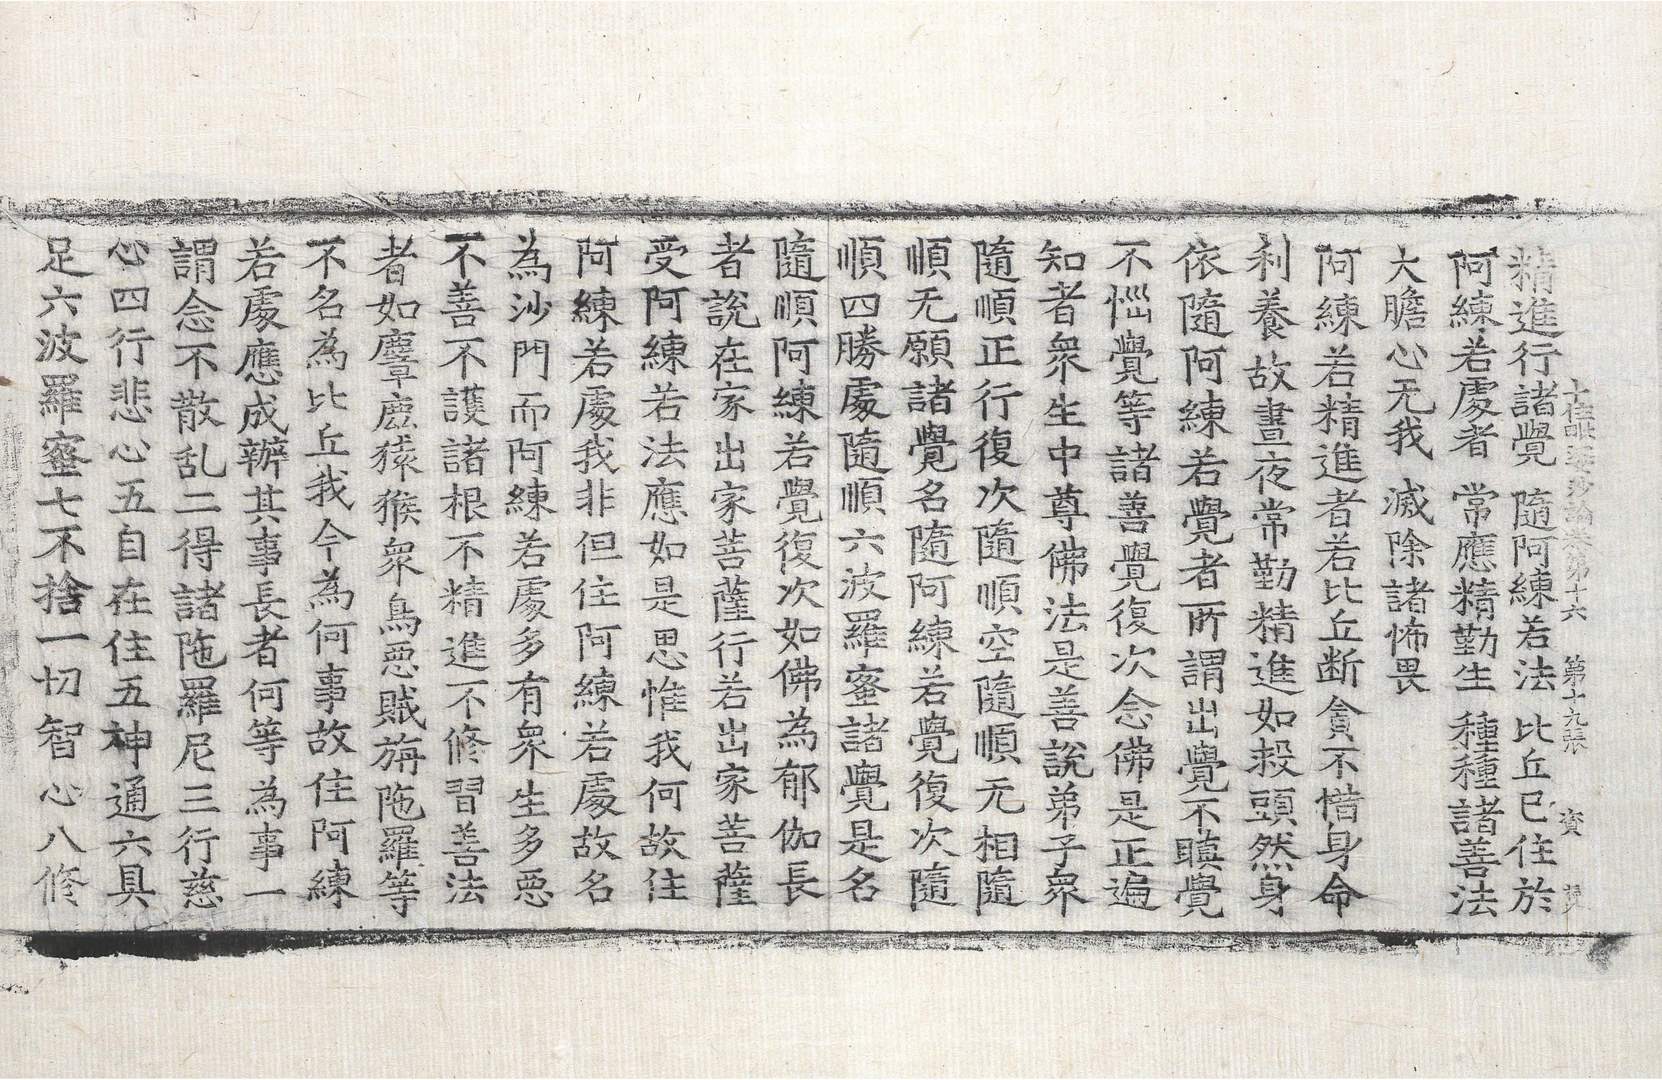 十住毗婆沙論卷第十六　第十九張　資
精進行諸覺　隨阿練若法　比丘已住於
阿練若處者　常應精勤生　種種諸善法
大膽心无我　滅除諸怖畏
阿練若精進者若比丘断貪不惜身命
利養故晝夜常勤精進如救頭然身
依隨阿練若覺者所謂出覺不瞋覺
不惱覺等諸善覺復次念佛是正遍
知者衆生中尊佛法是善說弟子衆
隨順正行復次隨順空隨順无相隨
順无願諸覺名隨阿練若覺復次隨
順四勝處隨順六波羅蜜諸覺是名
隨順阿練若覺復次如佛為郁伽長
者說在家出家菩薩行若出家菩薩
受阿練若法應如是思惟我何故住
阿練若處我非但住阿練若處故名
為沙門而阿練若處多有衆生多惡
不善不護諸根不精進不修習善法
者如麞鹿猿猴衆鳥惡賊旃陁羅等
不名為比丘我今為何事故住阿練
若處應成辦其事長者何等為事一
謂念不散乱二得諸陁羅尼三行慈
心四行悲心五自在住五神通六具
足六波羅蜜七不捨一切智心八修